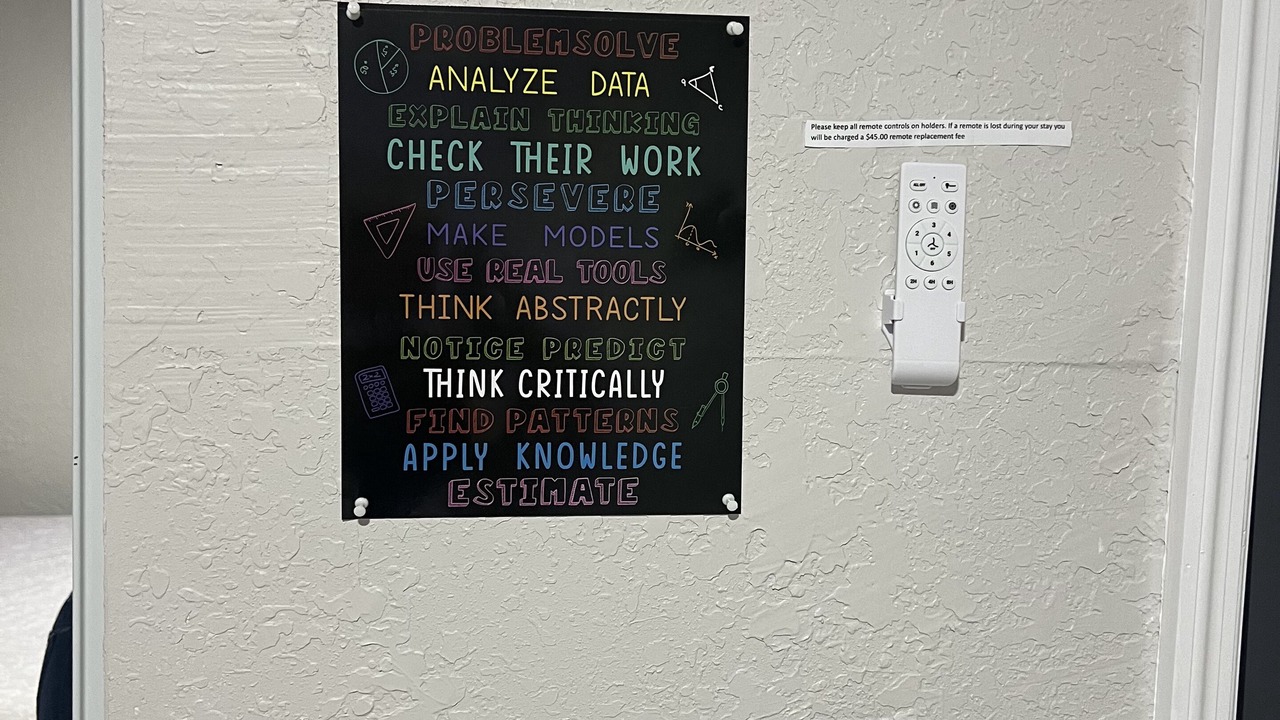 PROBLEMSOLVE
ANALYZE DATA
EXPLAIN THINKING
CHECK THEIR WORK
PERSEVERE
MAKE MODELS
USE REAL TOOLS
THINK ABSTRACTLY
NOTICE PREDICT
THINK CRITICALLY
FIND PATTERNS
APPLY KNOWLEDGE
ESTIMATE
Please keep all remote controls on holders. If a remote is lost during your stay you
will be charged a $45.00 remote replacement fee
ALL OFF
3
2 4
1 5
6
2H 4H 8H